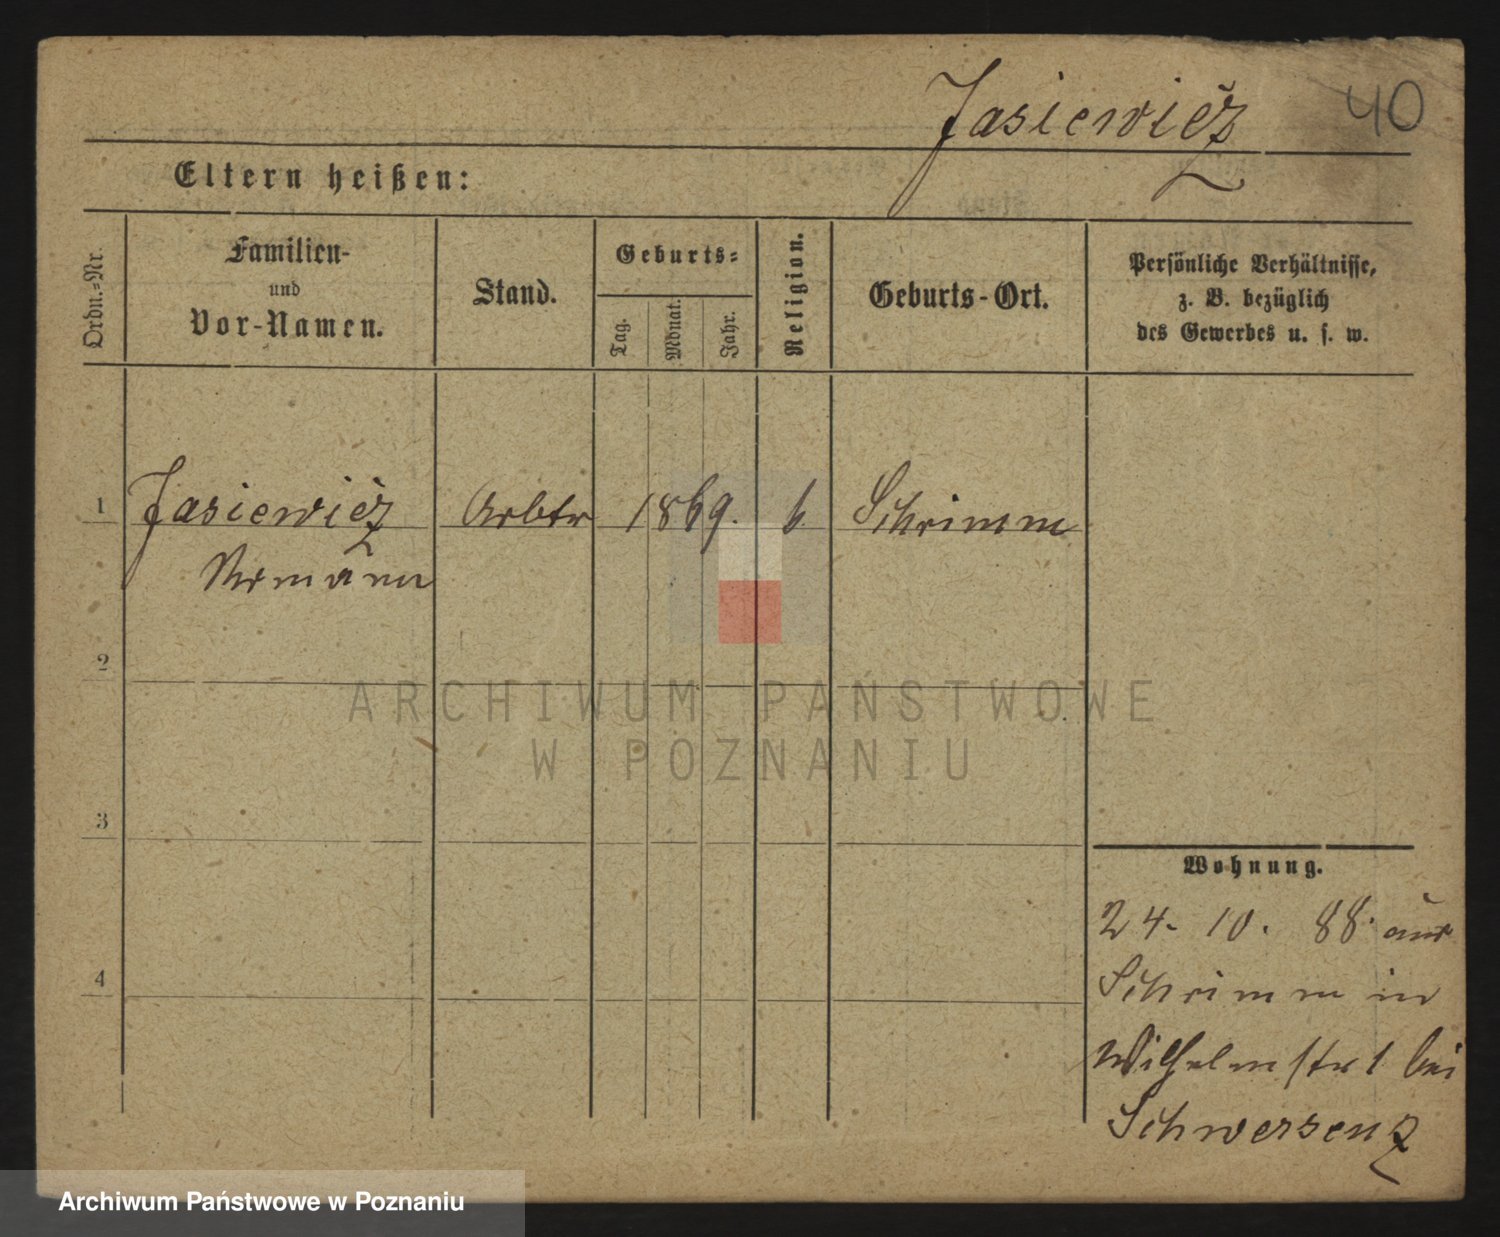 Jasiewicz 40
Eltern heißen:
Ordn.=Nr.
Familien-
und
Vor-Namen.
Stand.
Geburts=
Tag.
Monat.
Jahr.
Religion.
Geburts-Ort.
Persönliche Verhältnisse,
z. B. bezüglich
des Gewerbes u. s. w.
1 Jasiewicz Arbtr 1869. Schrimm
2
3
4
Wohnung.
24. 10. 88. aus
Schrimm in
Wilhelmstr 1 bei
Schwersenz
ARCHIWUM PAŃSTWOWE
W POZNANIU
Archiwum Państwowe w Poznaniu